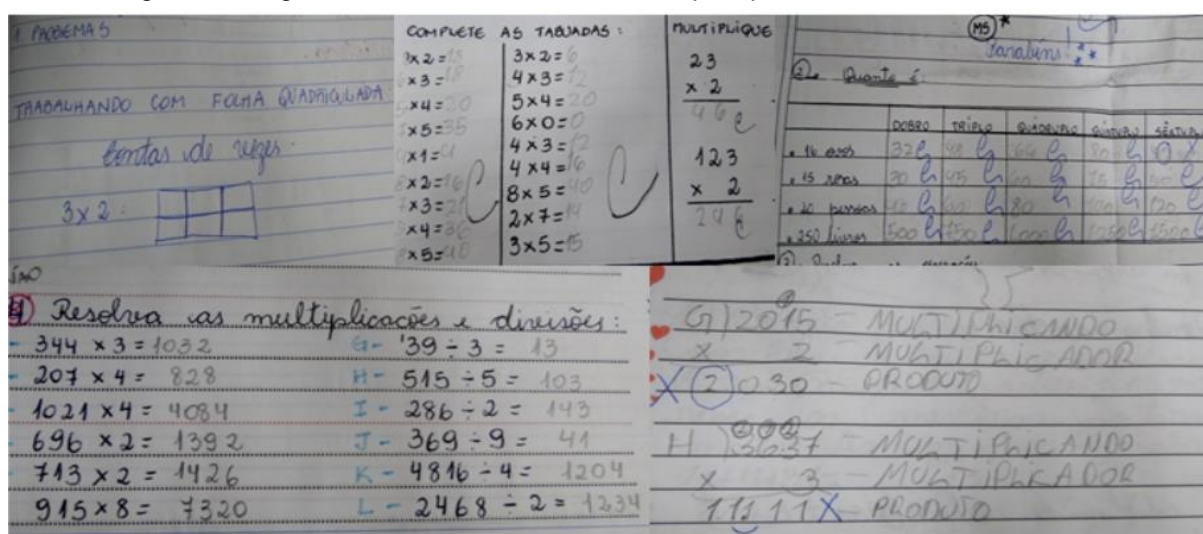 PROBLEMAS
TRABALHANDO COM FOLHA QUADRICULADA
contas de vezes.
3x2:
COMPLETE AS TABUADAS:
x2=18
x3=18
x4=20
x5=35
x1=9
x2=16
x3=21
x4=36
x5=40
3x2=6
4x3=12
5x4=20
6x0=0
4x3=12
4x4=16
8x5=40
2x7=14
3x5=15
MULTIPLIQUE
23
x 2
46
123
x 2
246
M5
Parabéns
2. Quanto é:
DOBRO TRIPLO QUÁDRUPLO QUÍNTUPLO SÊXTUPLO
. 16 ovos 32 48 64 80
. 15 30 45 60 75 90
. 20 pessoas 40 60 80 100 120
. 250 livros 500 750 1000 1250 1500
4) Resolva as multiplicações e divisões:
- 344 x 3 = 1032
- 207 x 4 = 828
- 1021 x 4 = 4084
696 x 2 = 1392
- 713 x 2 = 1426
915 x 8 = 7320
G- 39 ÷ 3 = 13
H- 515 ÷ 5 = 103
I- 286 ÷ 2 = 143
J- 369 ÷ 9 = 41
K- 4816 ÷ 4 = 1204
L- 2468 ÷ 2 = 1234
G) 2015 - MULTIPLICANDO
x 2 MULTIPLICADOR
X 2030 - PRODUTO
H) 3637 - MULTIPLICANDO
x 3 - MULTIPLICADOR
11111 X - PRODUTO